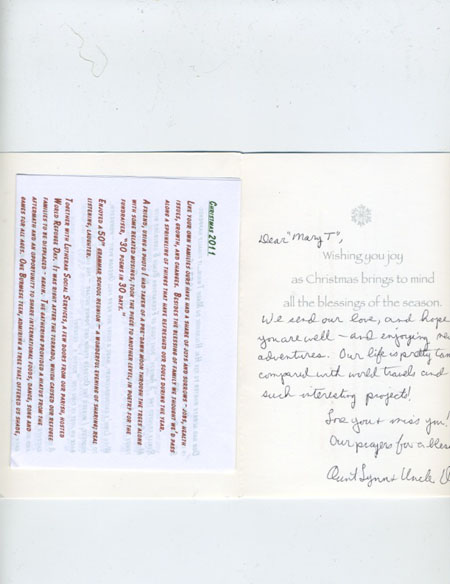 Christmas 2011.
Like your own families ours have had a share of joys and sorrows – jobs, health
issues, growth, and changes. Besides the blessing of family we thought we'd pass
along a sprinkling of things that have refreshed our souls during the year.
A friend, using a photo I had taken of a pre-dawn moon through the trees along
with some related musings, took the piece to another level; in poetry for the
fundraiser, "30 poems in 30 days."
Enjoyed a 50th grammar school reunion – a wonderful evening of sharing; real
listening, required.
Together with Lutheran Social Services, a few doors from our parish, hosted
World Refugee Day. It was right after the tornado, which caused our refugee
families to be displaced - again. The gathering provided a hiatus from the
aftermath and an opportunity to share international foods, dance, song and
games for all ages. One Burmese teen, admiring a tree that offered us shade,
Dear "Mary T",
Wishing you joy
as Christmas brings to mind
all the blessings of the season.
We send our love, and hope
you are well – and enjoying
adventures. Our life is pretty
compared with world travels and
such interesting projects!
Love you & miss you!
Our prayers for
Aunt Lynn & Uncle